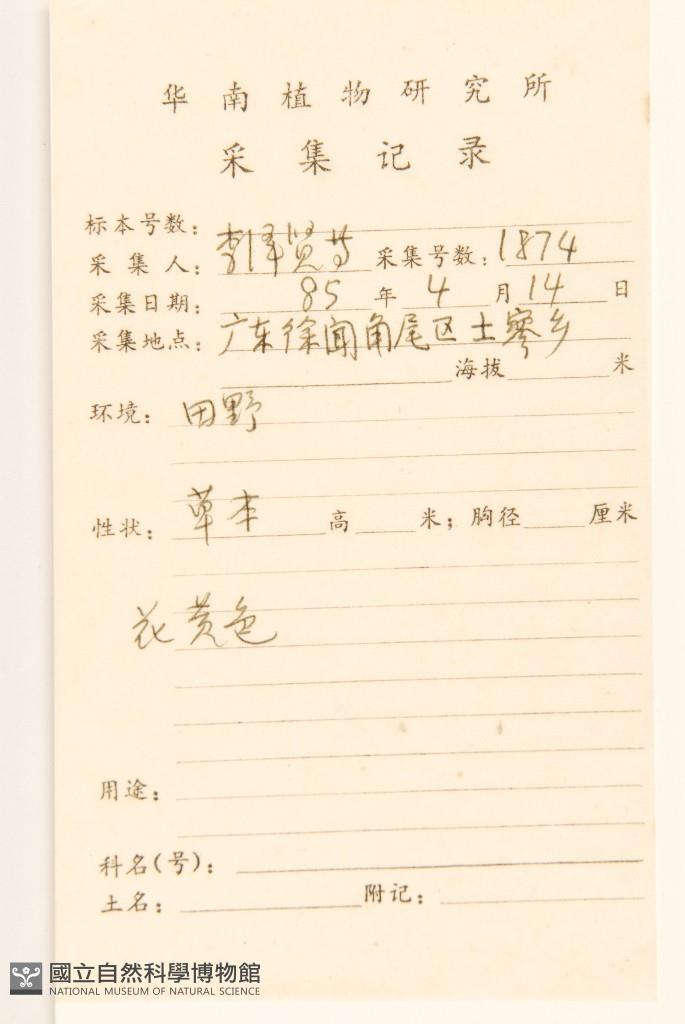 华南植物研究所
采集记录
标本号数：
采集人：李泽贤等 采集号数：1874
采集日期：85年4月14日
采集地点：广东徐闻角尾区土寮乡
海拔 米
环境：田野
性状：草本 高 米；胸径 厘米
花黄色
用途：
科名(号)：
土名： 附记：
國立自然科學博物館
NATIONAL MUSEUM OF NATURAL SCIENCE